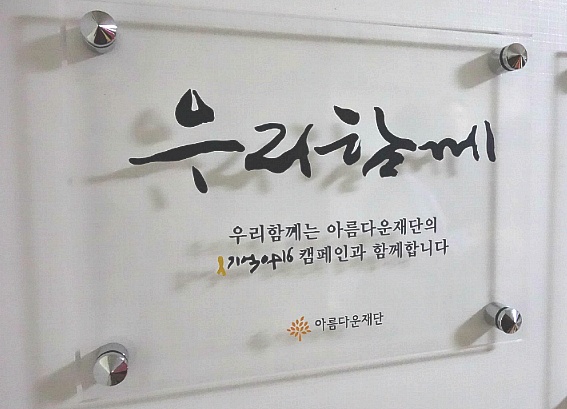 우리함께
우리함께는 아름다운재단의
기억0416 캠페인과 함께합니다
아름다운재단